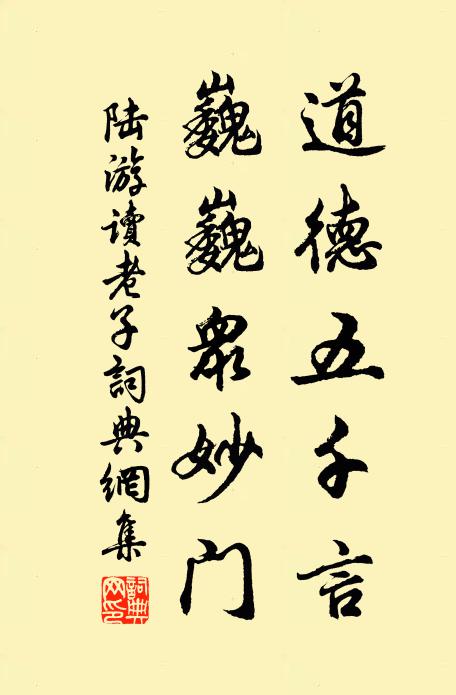 道德五千言
巍巍眾妙门
陆游讀老子詞典網集
詞典网印